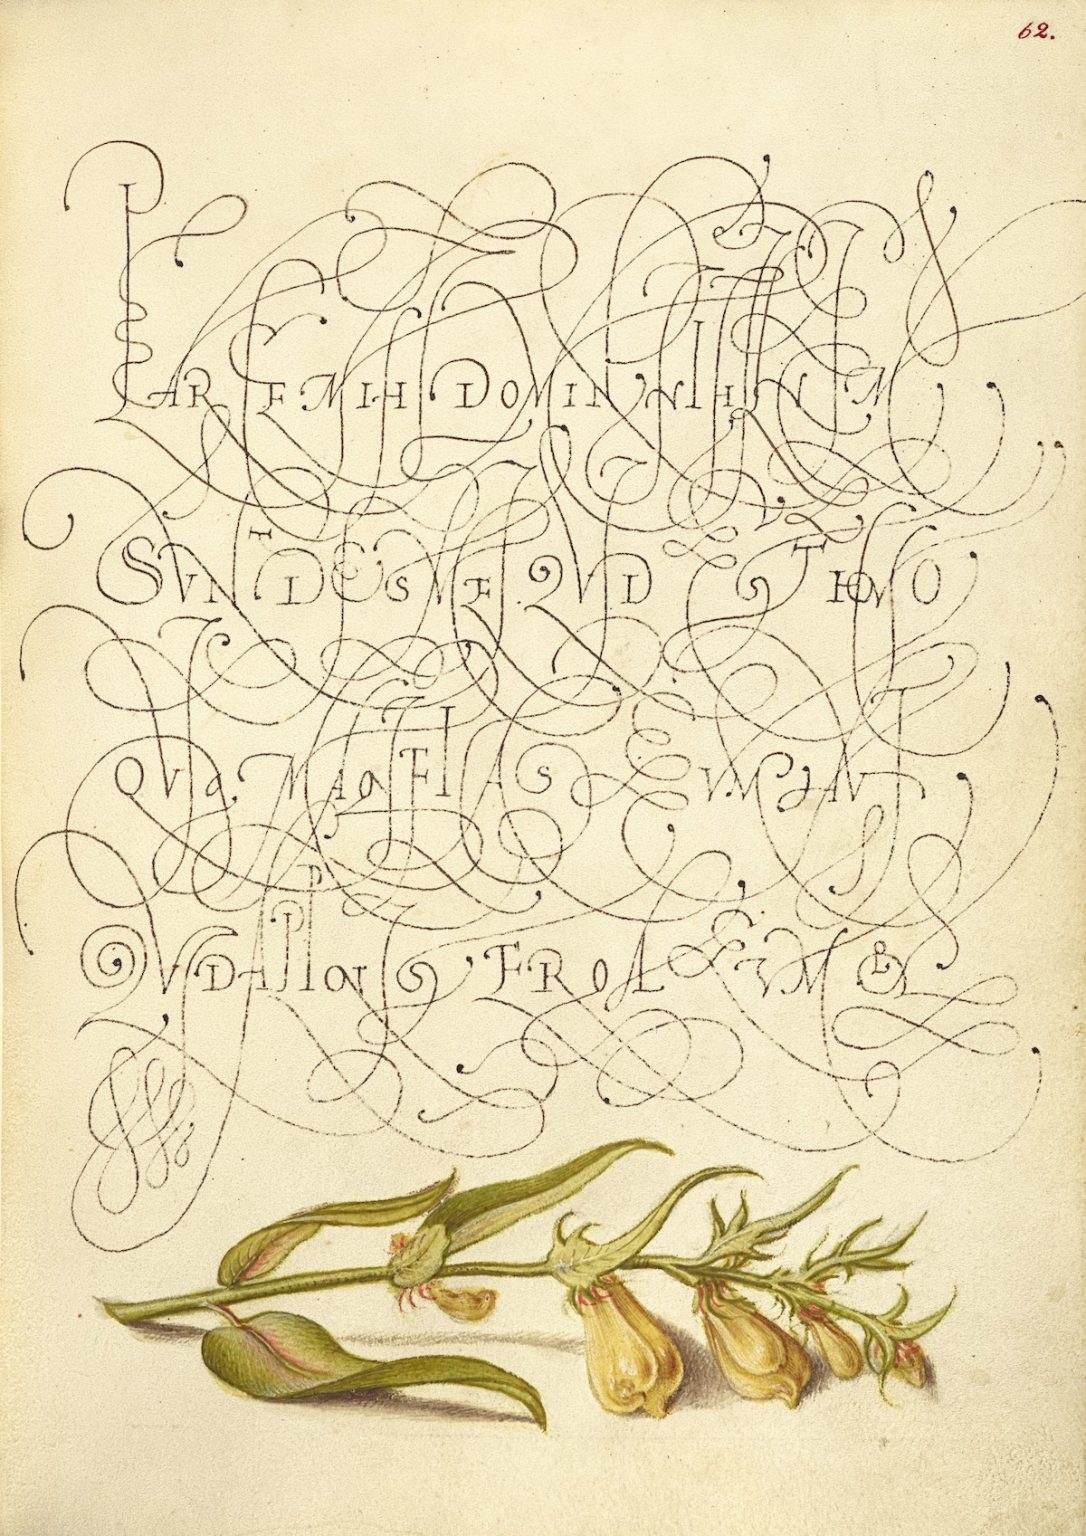 62.
PARCE MIHI DOMINE NIHIL ENIM
SVNT DIES MEI. QVID EST HOMO
QVIA MAGNIFICAS EVM? AVT
QVID APPONIS EVM